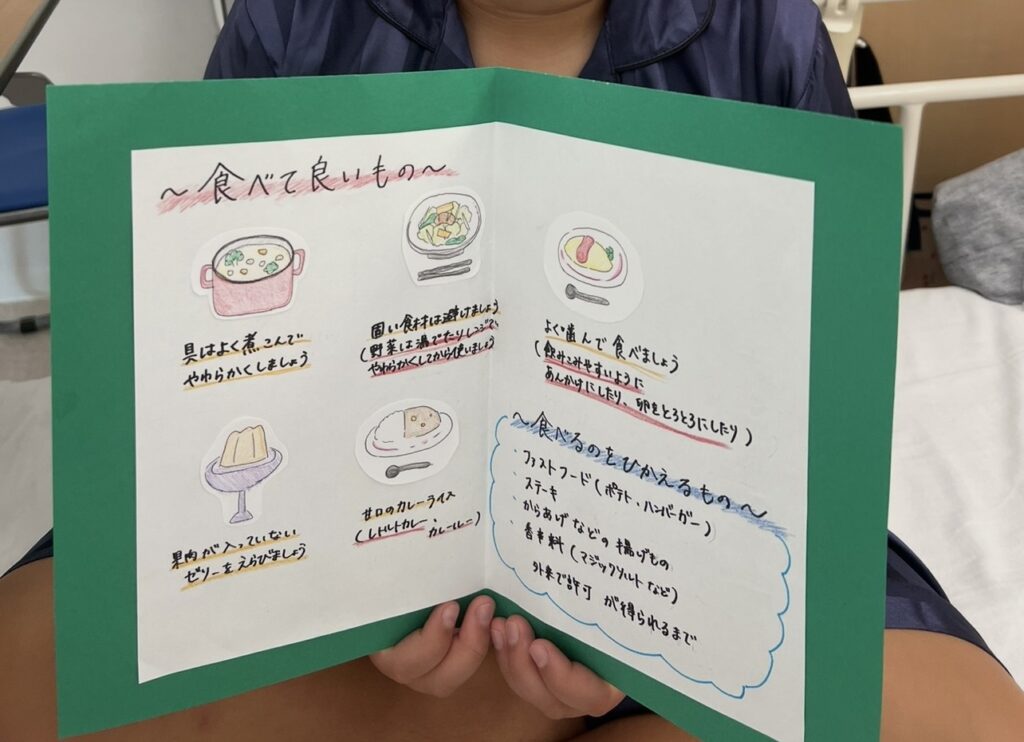 ～食べて良いもの～
具はよく煮こんで
やわらかくしましょう
固い食材は避けましょう
(野菜は湯でたりレンジで、
やわらかくしてから使いましょう
果肉が入っていない
ゼリーをえらびましょう
甘口のカレーライス
(レトルトカレー、カレールー)
よく歯んで食べましょう
(飲みこみやすいように
あんかけにしたり、卵をとろとろにしたり)
～食べるのをひかえるもの～
・ファストフード(ポテト、ハンバーガー)
・ステーキ
・からあげなどの揚げもの
・香辛料(マジックソルトなど)
外来で許可が得られるまで